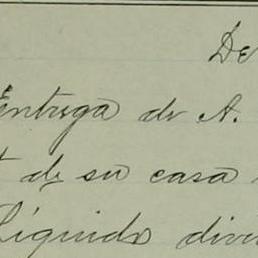 De
Entrega de A.
de su casa
Líquido divi